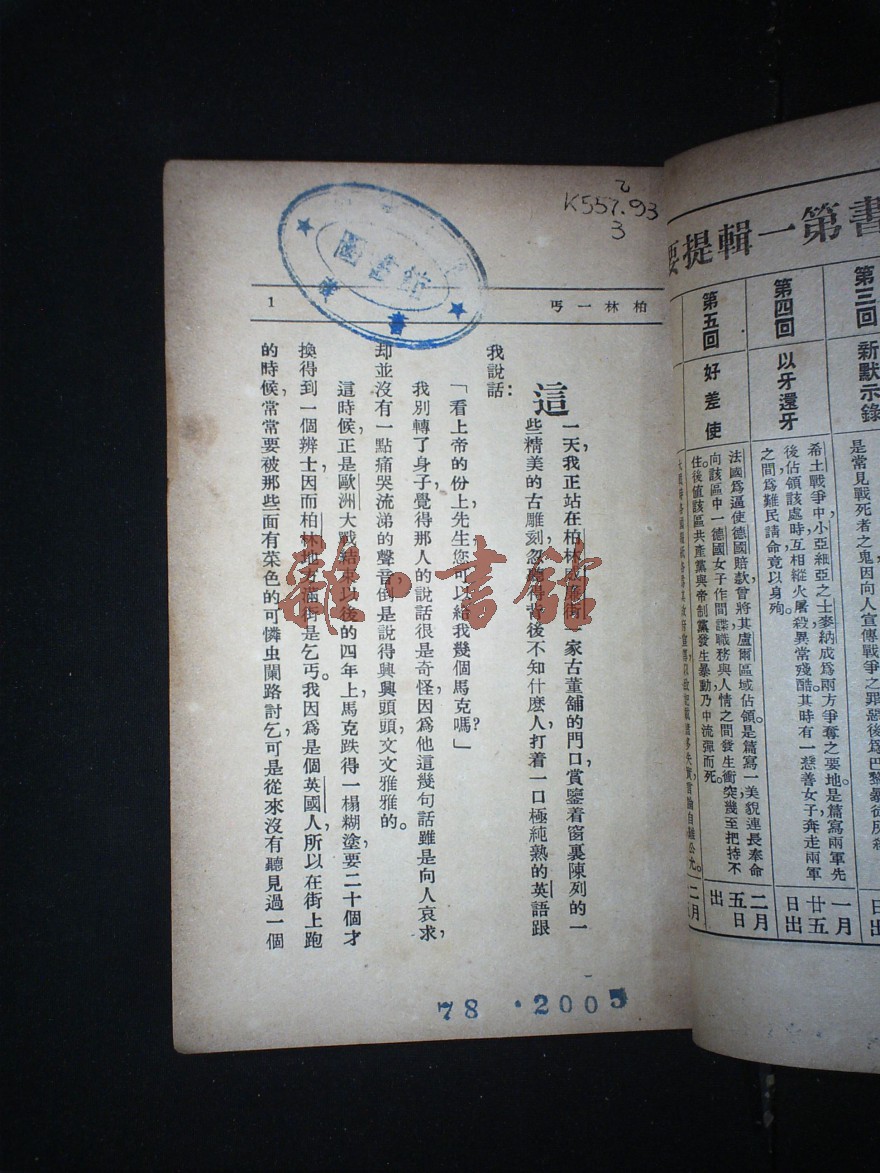 書第一輯提要
第三回 新默示錄
是常見戰死者之鬼因向人宣傳戰爭之罪惡後爲巴黎暴徒所殺
第四回 以牙還牙
希土戰爭中小亞細亞之士麥納成爲兩方爭奪之要地是篇寫兩軍先
後佔領該處時互相縱火屠殺異常殘酷其時有一慈善女子奔走兩軍
之間爲難民請命竟以身殉
一月
廿五
日出
第五回 好差使
法國爲逼使德國賠款曾將其盧爾區域佔領。是篇寫一美貌連長奉命
向該區中一德國女子作間諜職務與人情之間發生衝突幾至把持不
住。後值該區共產黨與帝制黨發生暴動乃中流彈而死。
二月
五日
出
二月
K557.93
3
圖書館
書
柏林一丐
1
這一天,我正站在柏林 街一家古董舖的門口賞鑒着窗裏陳列的一
些精美的古雕刻,忽 得背後不知什麽人,打着一口極純熟的英語跟
我說話:
「看上帝的份上,先生您可以給我幾個馬克嗎?」
我別轉了身子,覺得那人的說話很是奇怪,因爲他這幾句話雖是向人哀求,
却並沒有一點痛哭流涕的聲音,倒是說得興興頭頭,文文雅雅的。
這時候,正是歐洲大戰結束以後的四年上,馬克跌得一榻糊塗,要二十個才
換得到一個辨士,因而柏林地方滿街是乞丐。我因爲是個英國人,所以在街上跑
的時候,常常要被那些面有菜色的可憐虫闌路討乞,可是從來沒有聽見過一個
雜·書館
78.2005